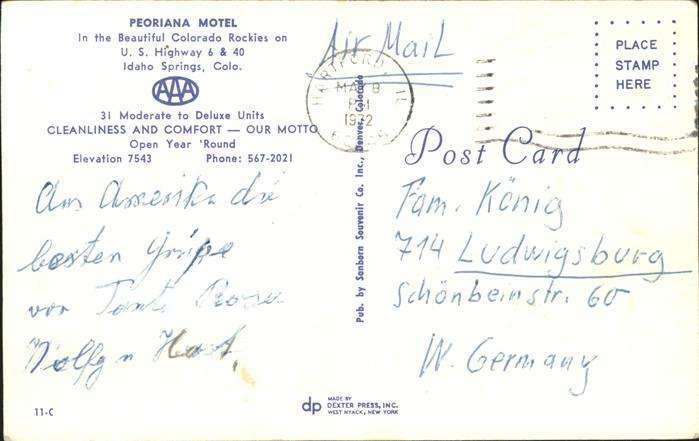 PEORIANA MOTEL
In the Beautiful Colorado Rockies on
U. S. Highway 6 & 40
Idaho Springs, Colo.
AAA
31 Moderate to Deluxe Units
CLEANLINESS AND COMFORT — OUR MOTTO
Open Year 'Round
Elevation 7543 Phone: 567-2021
Aus Amerika die
besten Grüße
von Tante
Air Mail
HARTFORD
MAY 8
PM
1972
PLACE
STAMP
HERE
Post Card
Fam. König
714 Ludwigsburg
Schönbeinstr. 60
W. Germany
Pub. by Sanborn Souvenir Co. Inc., Denver, Colorado
11-C
dp MADE BY
DEXTER PRESS, INC.
WEST NYACK, NEW YORK